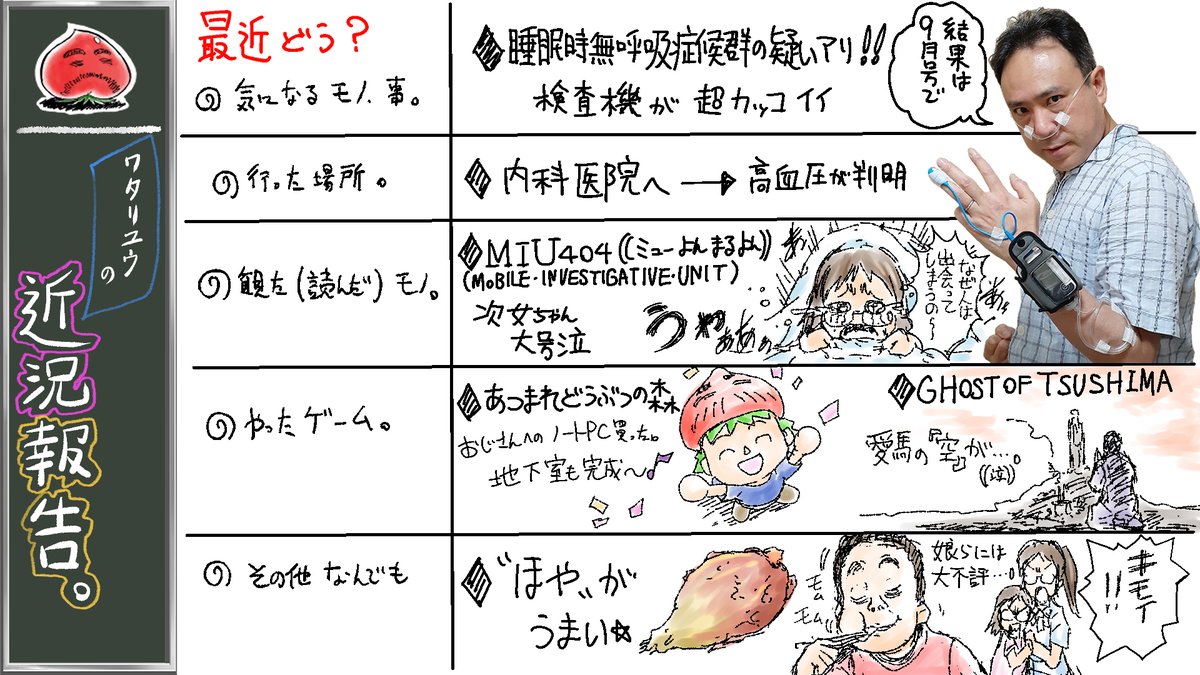 ワタリユウの
近況報告。
最近どう？
気になるモノ、事。
睡眠時無呼吸症候群の疑いアリ!!
検査機が超カッコイイ
結果は
9月号で
行った場所。
内科医院へ→高血圧が判明
観た(読んだ)モノ。
MIU404((ミューよんまるよん))
(MOBILE・INVESTIGATIVE・UNIT)
次女ちゃん
大号泣
なぜ人は
出会って
しまうの〜
やったゲーム。
あつまれどうぶつの森
おじさんへのノートPC買った。
地下室も完成〜♪
GHOST OF TSUSHIMA
愛馬の『空』が…。
((泣))
その他なんでも
"ほや"が
うまい☆
モム
モム
娘らには
大不評…。
キモイ
!!